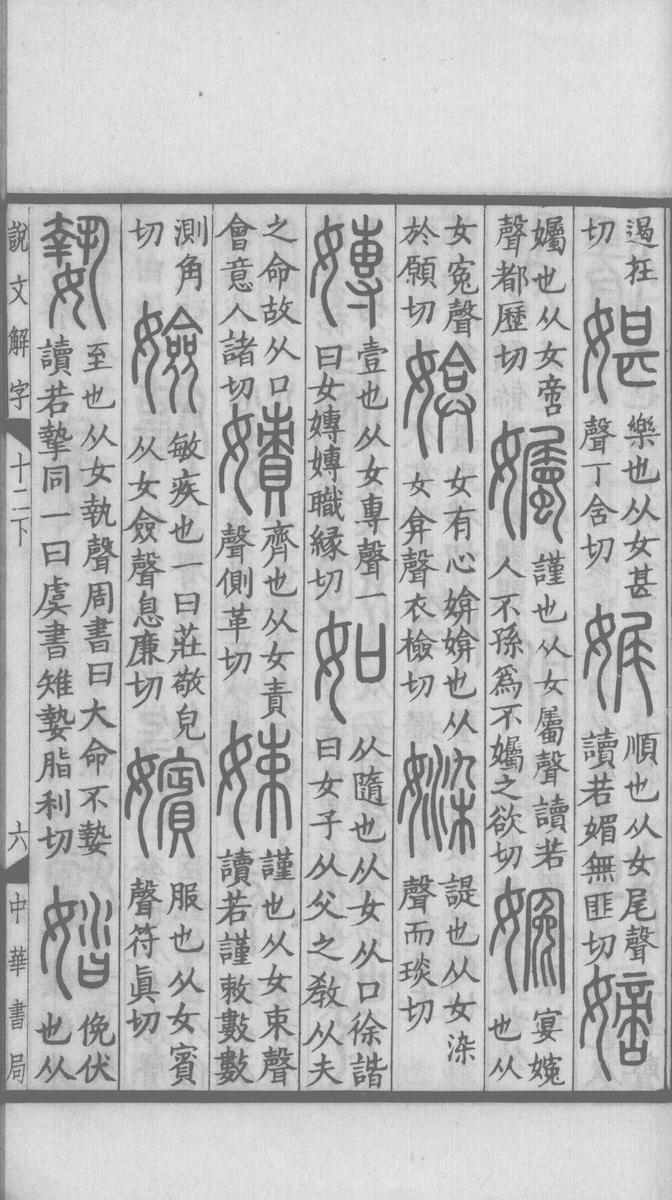 遏在切媅樂也从女甚聲丁含切娓順也从女尾聲讀若媚無匪切嫡
孎也从女啻聲都歷切孎謹也从女屬聲讀若人不孫爲不孎之欲切宴婉也从
女冤聲於願切媕女有心媕媕也从女弇聲衣檢切媣諟也从女染聲而琰切
嫥壹也从女專聲一曰女嫥嫥職緣切如从隨也从女从口徐鍇曰女子从父之敎从夫
之命故从口會意人諸切嫧齊也从女責聲側革切娕謹也从女束聲讀若謹敕數數
測角切嬐敏疾也一曰莊敬皃从女僉聲息廉切嬪服也从女賓聲符眞切
𡠗至也从女執聲周書曰大命不𡠗讀若摯同一曰虞書雉𡠗脂利切㛥俛伏也从
說文解字 十二下 六 中華書局